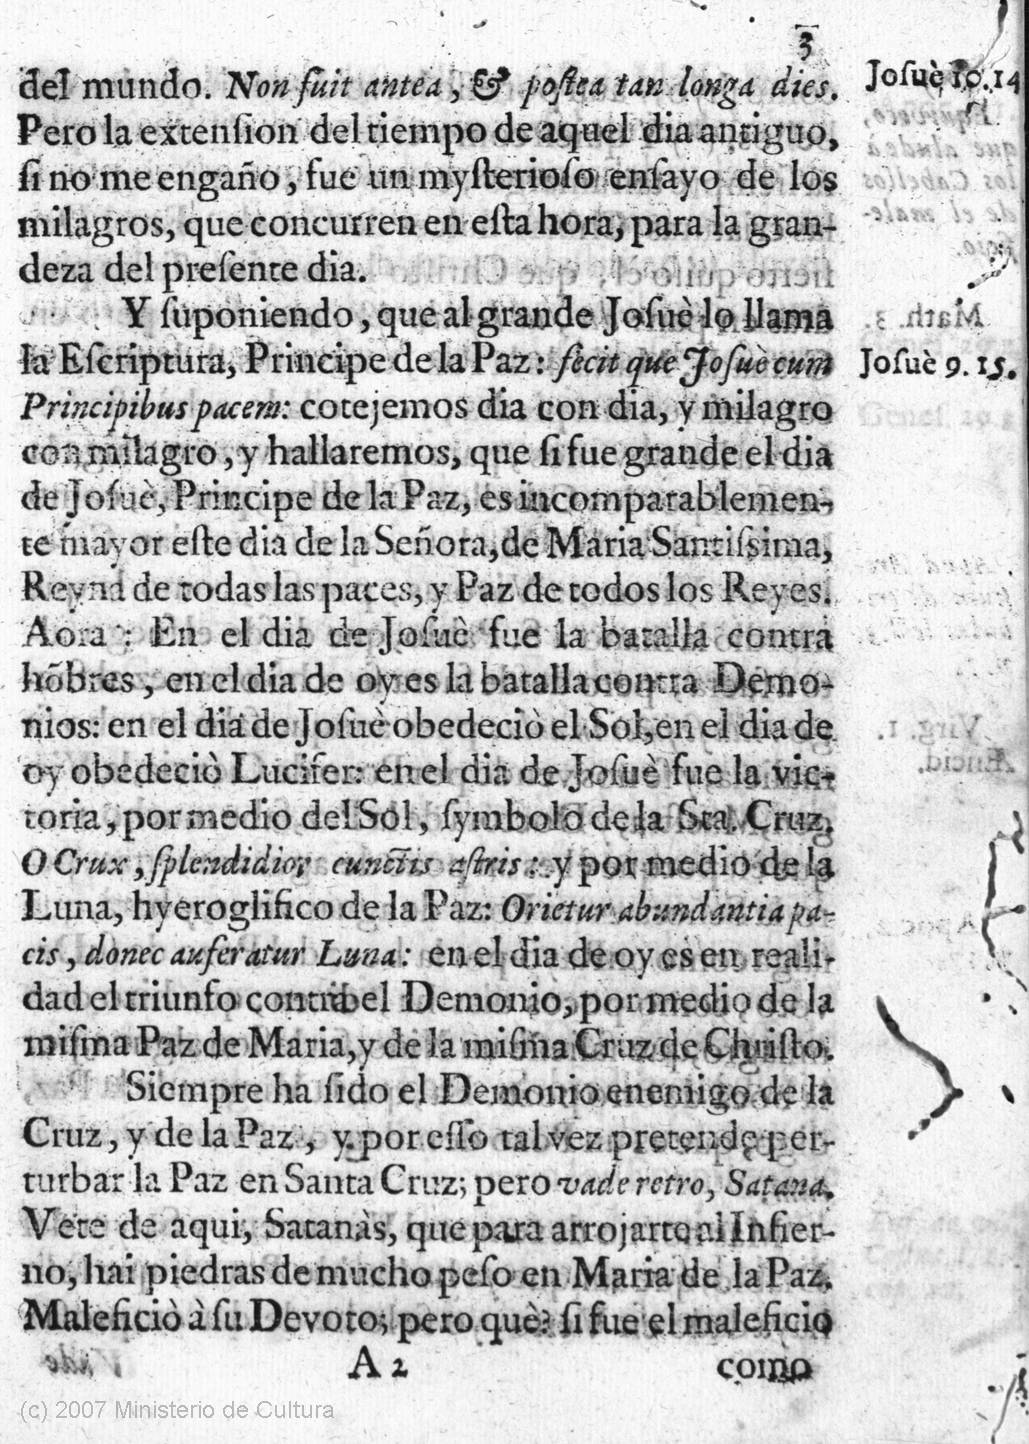 3
del mundo. Non fuit antea, & poſtea tan longa dies.
Joſuè 10. 14
Pero la extenſion del tiempo de aquel dia antiguo,
ſi no me engaño, fue un myſterioſo enſayo de los
milagros, que concurren en eſta hora, para la gran-
deza del preſente dia.
Y ſuponiendo, que al grande Joſuè lo llama
la Eſcriptura, Principe de la Paz: fecit que Joſuè cum
Joſuè 9. 15.
Principibus pacem: cotejemos dia con dia, y milagro
con milagro, y hallaremos, que ſi fue grande el dia
de Joſuè, Principe de la Paz, es incomparablemen-
te mayor eſte dia de la Señora, de Maria Santiſsima,
Reyna de todas las paces, y Paz de todos los Reyes.
Aora : En el dia de Joſuè fue la batalla contra
hõbres, en el dia de oy es la batalla contra Demo-
nios: en el dia de Joſuè obedeciò el Sol, en el dia de
oy obedeciò Lucifer: en el dia de Joſuè fue la vic-
toria, por medio del Sol, ſymbolo de la Sta. Cruz.
O Crux, ſplendidior cunctis aſtris: y por medio de la
Luna, hyeroglifico de la Paz: Orietur abundantia pa-
cis, donec auferatur Luna: en el dia de oy es en reali-
dad el triunfo contra el Demonio, por medio de la
miſma Paz de Maria, y de la miſma Cruz de Chriſto.
Siempre ha ſido el Demonio enemigo de la
Cruz, y de la Paz, y por eſſo tal vez pretende per-
turbar la Paz en Santa Cruz; pero vade retro, Satana.
Vete de aqui, Satanàs, que para arrojarte al Infier-
no, hai piedras de mucho peſo en Maria de la Paz.
Maleficiò à ſu Devoto; pero què? ſi fue el maleficio
A 2
como
(c) 2007 Ministerio de Cultura